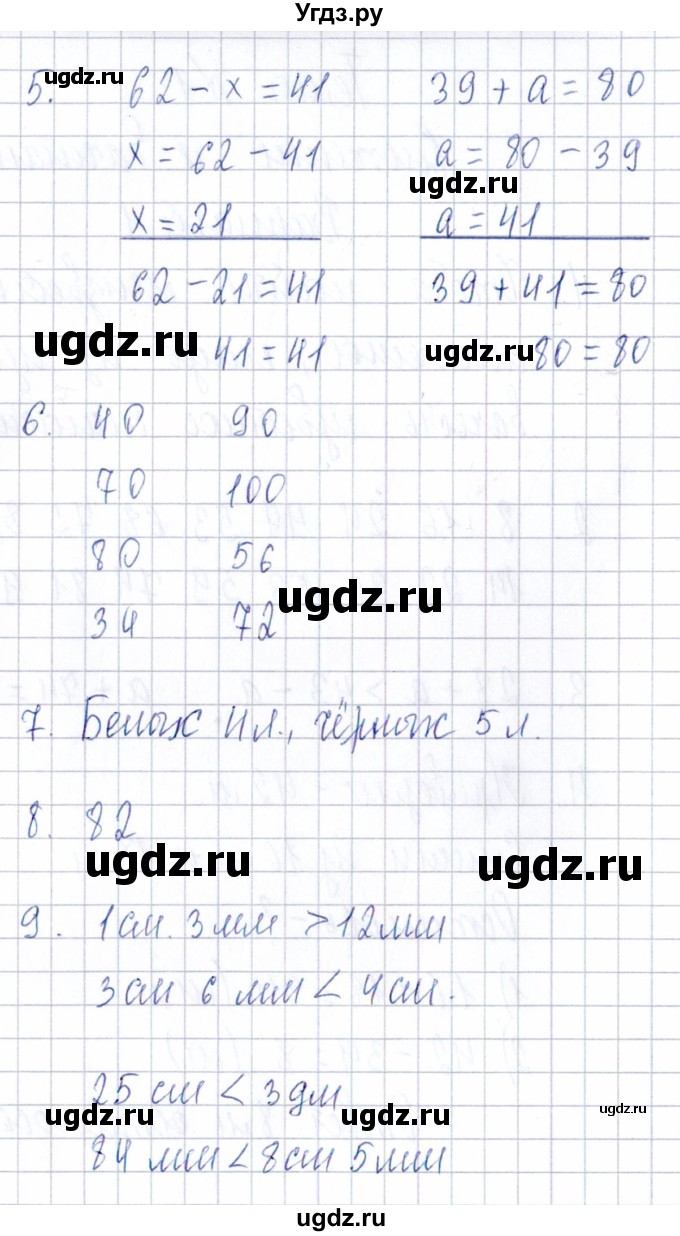 Угдз.ру
ugdz.ru
5. 62 - x = 41 39 + a = 80
x = 62 - 41 a = 80 - 39
ugdz.ru
x = 21 a = 41
62 - 21 = 41 39 + 41 = 80
ugdz.ru 41 = 41 ugdz.ru 80 = 80
6. 40 90
70 100
80 56
ugdz.ru
34 72
7. Белых 4 л., чёрных 5 л.
8. 82
ugdz.ru ugdz.ru
9. 1 см. 3 мм > 12 мм
3 см 6 мм < 4 см.
25 см < 3 дм
ugdz.ru ugdz.ru ugdz.ru
84 мм < 8 см 5 мм
ugdz.ru